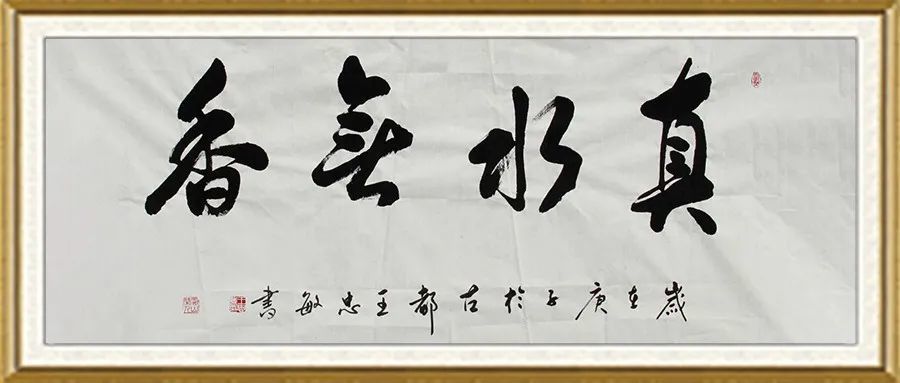 真水無香
歲在庚子於古都王忠敏書